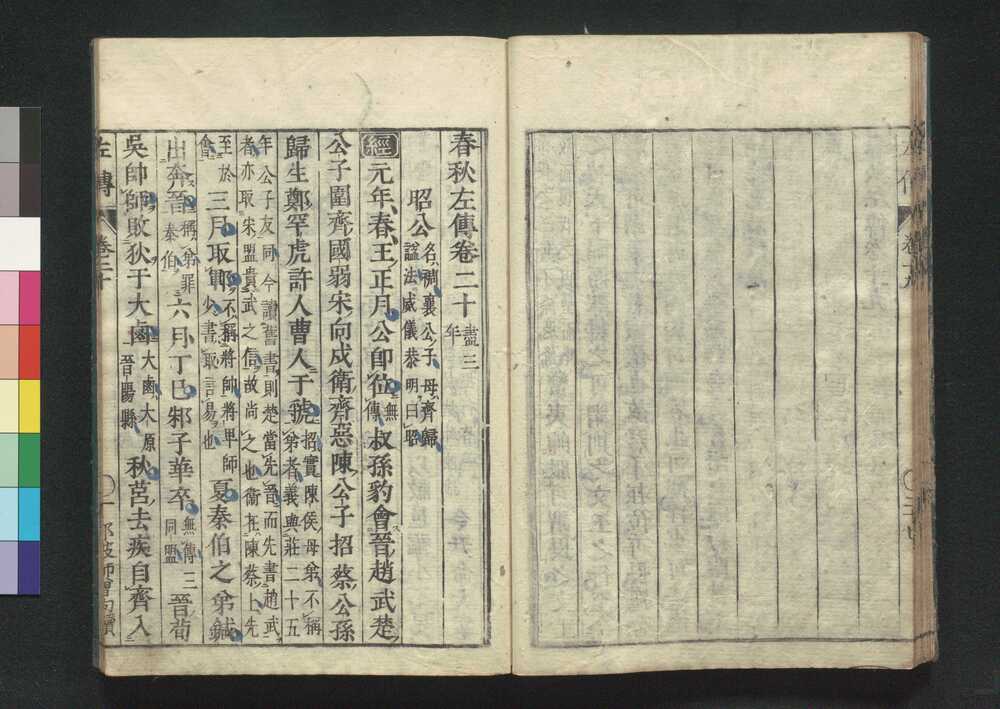 春秋左傳卷二十盡三年
昭公名裯襄公子母齊歸諡法威儀恭明曰昭
經元年春王正月公卽位無傳叔孫豹會晉趙武楚
公子圍齊國弱宋向戌衛齊惡陳公子招蔡公孫
歸生鄭罕虎許人曹人于虢招實陳侯母弟不稱弟者義與莊二十五
年公子友同今讀舊書則楚當先晉而先書趙武者亦取宋盟貴武之信故尚之也衛在陳蔡上先
至於會三月取鄆不稱將帥將卑師少書取言易也夏秦伯之弟鍼
出奔晉稱弟罪秦伯六月丁巳邾子華卒無傳三同盟晉荀
吳帥師敗狄于大鹵大鹵大原晉陽縣秋莒去疾自齊入
左傳 卷二十 一 那波師曾句讀